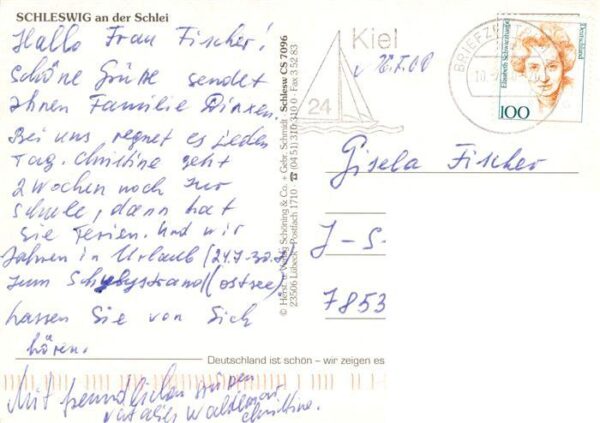 SCHLESWIG an der Schlei
Hallo Frau Fischer!
Schöne Grüsse sendet
Ihnen Familie
Bei uns regnet es jeden
Tag. Christine geht
2 Wochen noch zur
Schule, dann hat
sie Ferien. Und wir
fahren in Urlaub (24.7-30.7)
zum (Ostsee).
Lassen Sie von Sich
hören.
Mit freundlichen
Waldemar
Christine.
Schlesw CS 7096
+ Gebr. Schmidt ·
23506 Lübeck · Postfach 1710 · ☎ (04 51) 310 310 · Fax 3 52 83
Kiel
24
BRIEFZENTRUM
Elisabeth Schwarzhaupt
Deutschland
100
Gisela Fischer
J-S-
7853
Deutschland ist schön – wir zeigen es